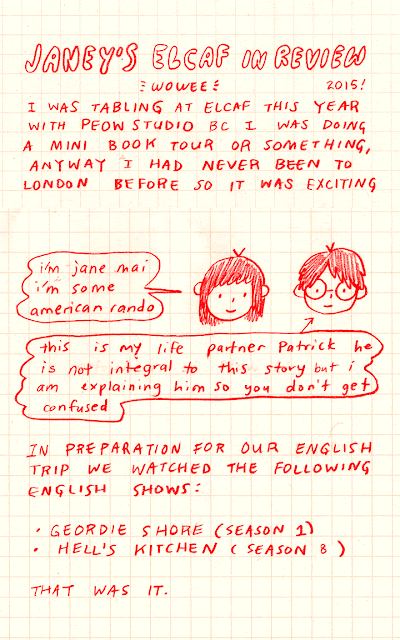 JANEY'S ELCAF IN REVIEW
WOWEE 2015!
I WAS TABLING AT ELCAF THIS YEAR
WITH PEOW STUDIO BC I WAS DOING
A MINI BOOK TOUR OR SOMETHING,
ANYWAY I HAD NEVER BEEN TO
LONDON BEFORE SO IT WAS EXCITING
i'm jane mai
i'm some
american rando
this is my life partner Patrick he
is not integral to this story but i
am explaining him so you don't get
confused
IN PREPARATION FOR OUR ENGLISH
TRIP WE WATCHED THE FOLLOWING
ENGLISH SHOWS:
• GEORDIE SHORE (SEASON 1)
• HELL'S KITCHEN (SEASON 8)
THAT WAS IT.